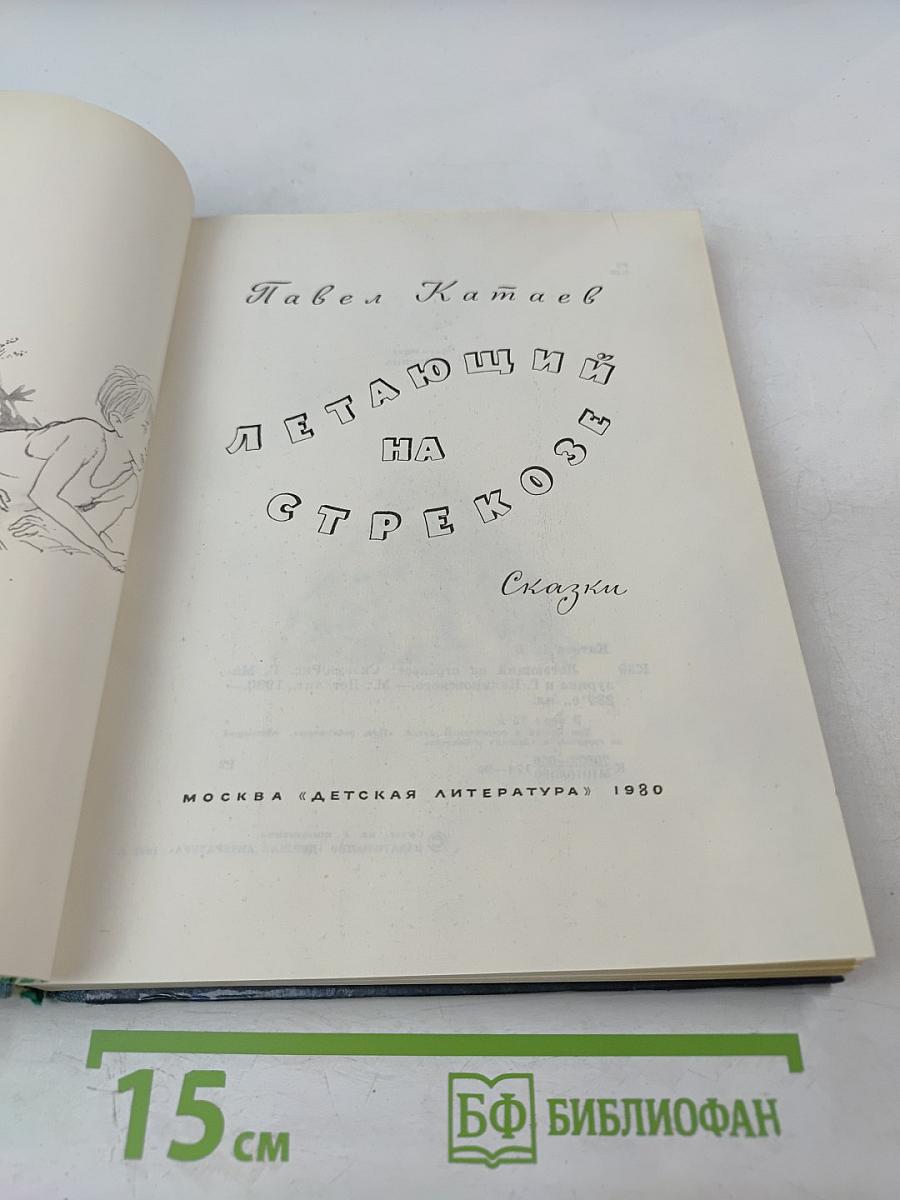 Павел Катаев
ЛЕТАЮЩИЙ
НА
СТРЕКОЗЕ
Сказки
МОСКВА «ДЕТСКАЯ ЛИТЕРАТУРА» 1980
15 см
БФ БИБЛИОФАН